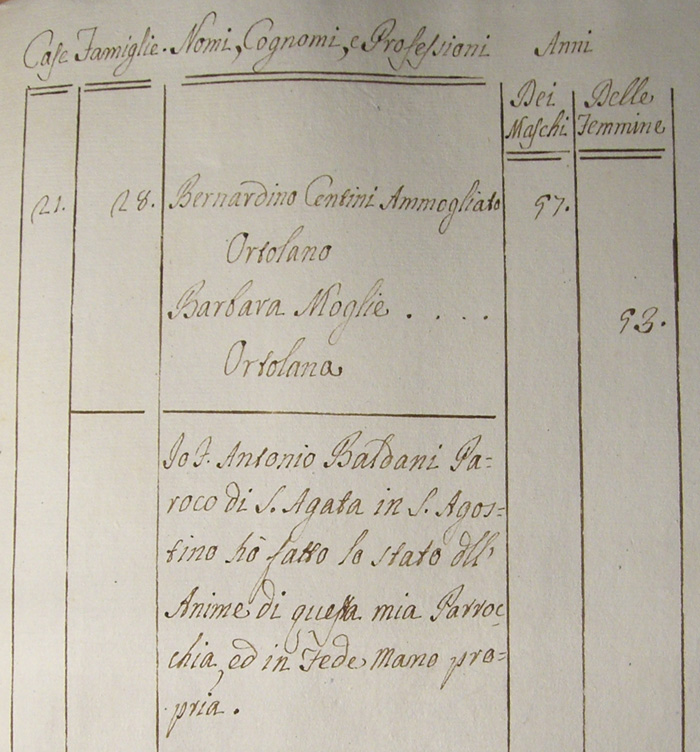 Case Famiglie. Nomi, Cognomi, e Professioni Anni
Dei Maschi Delle Femmine
21. 28. Bernardino Centini Ammogliato 57.
Ortolano
Barbara Moglie . . . . 53.
Ortolana
Io F. Antonio Baldani Pa=
roco di S. Agata in S. Agos=
tino hò fatto lo stato dll'
Anime di questa mia Parroc=
chia, ed in Fede mano pro=
pria.